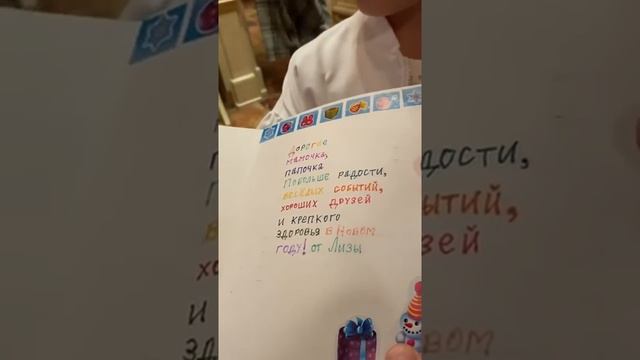 Дорогие
мамочка,
папочка
Побольше радости,
весёлых событий,
хороших друзей
и крепкого
здоровья в Новом
году! от Лизы